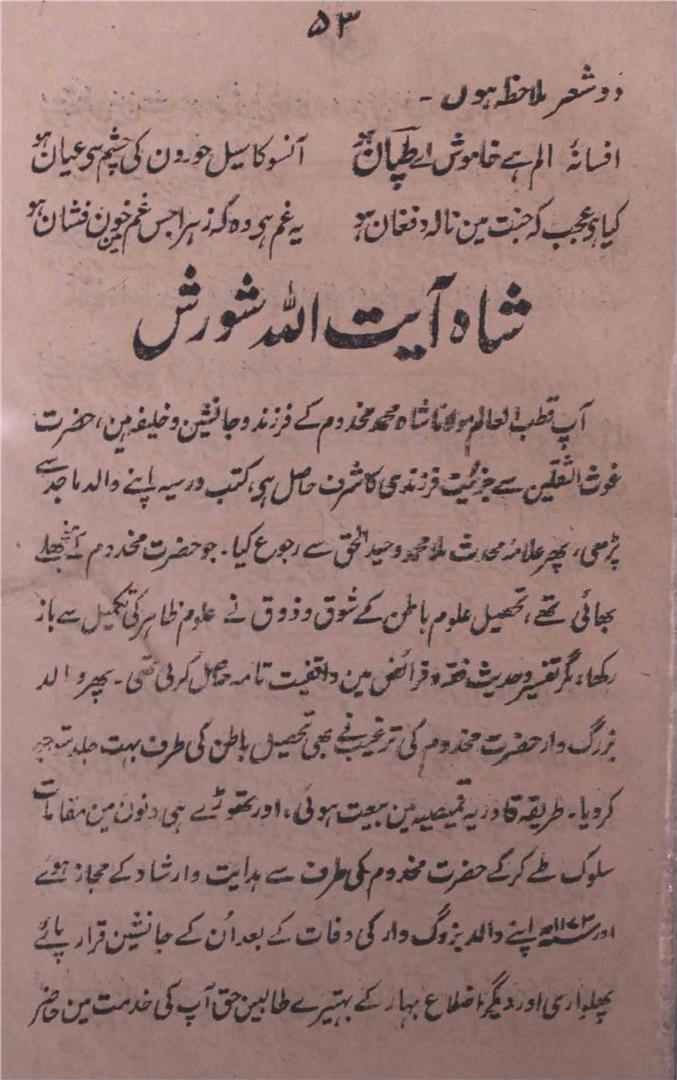 ۵۳
دو شعر ملاحظہ ہوں -
افسانۂ الم ہے خاموش اے طپان ہو آنسو کا سیل حورون کی چشم سی عیان ہو
کیا ہی عجب کہ جنت مین نالہ و فغان ہو یہ غم ہی وہ کہ زہرا جس غم مین خون فشان ہو
شاہ آیت اللہ شورش
آپ قطب العالم مولانا شاہ محمد مخدوم کے فرزند و جانشین و خلیفہ ہین، حضرت
غوث الثقلین سے جزئیت فرزندی کا شرف حاصل ہی، کتب درسیہ اپنے والد ماجد سے
پڑھی، پھر علامہ محدث ملا محمد وحید الحق سے رجوع کیا۔ جو حضرت مخدوم کے منجھلے
بھائی تھے، تحصیل علوم باطن کے شوق و ذوق نے علوم ظاہر کی تکمیل سے باز
رکھا، مگر تفسیر و حدیث فقہ و فرائض مین واقفیت تامہ حاصل کرلی تھی۔ پھر والد
بزرگ وار حضرت مخدوم کی ترغیب نے بھی تحصیل باطن کی طرف بہت جلد متوجہ
کردیا۔ طریقہ قادریہ قمیصیہ مین بیعت ہوئی، اور تھوڑے ہی دنون مین مقامات
سلوک طے کرکے حضرت مخدوم کی طرف سے ہدایت و ارشاد کے مجاز ہوے
اور ۱۱۷۳ھ اپنے والد بزرگ وار کی وفات کے بعد اُن کے جانشین قرار پائے
پھلواری اور دیگر اضلاع بہار کے بہتیرے طالبین حق آپ کی خدمت مین حاضر